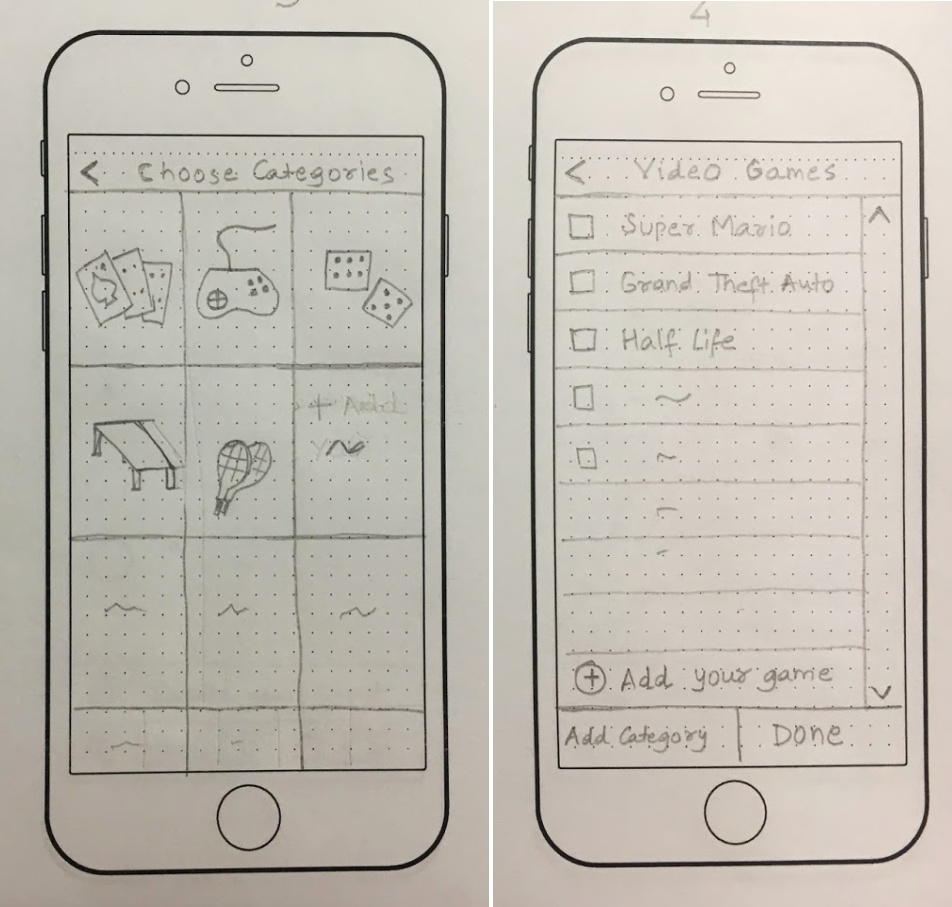 < Choose Categories
+ Add
4
< Video Games
Super Mario
Grand Theft Auto
Half Life
+ Add your game
Add Category
Done